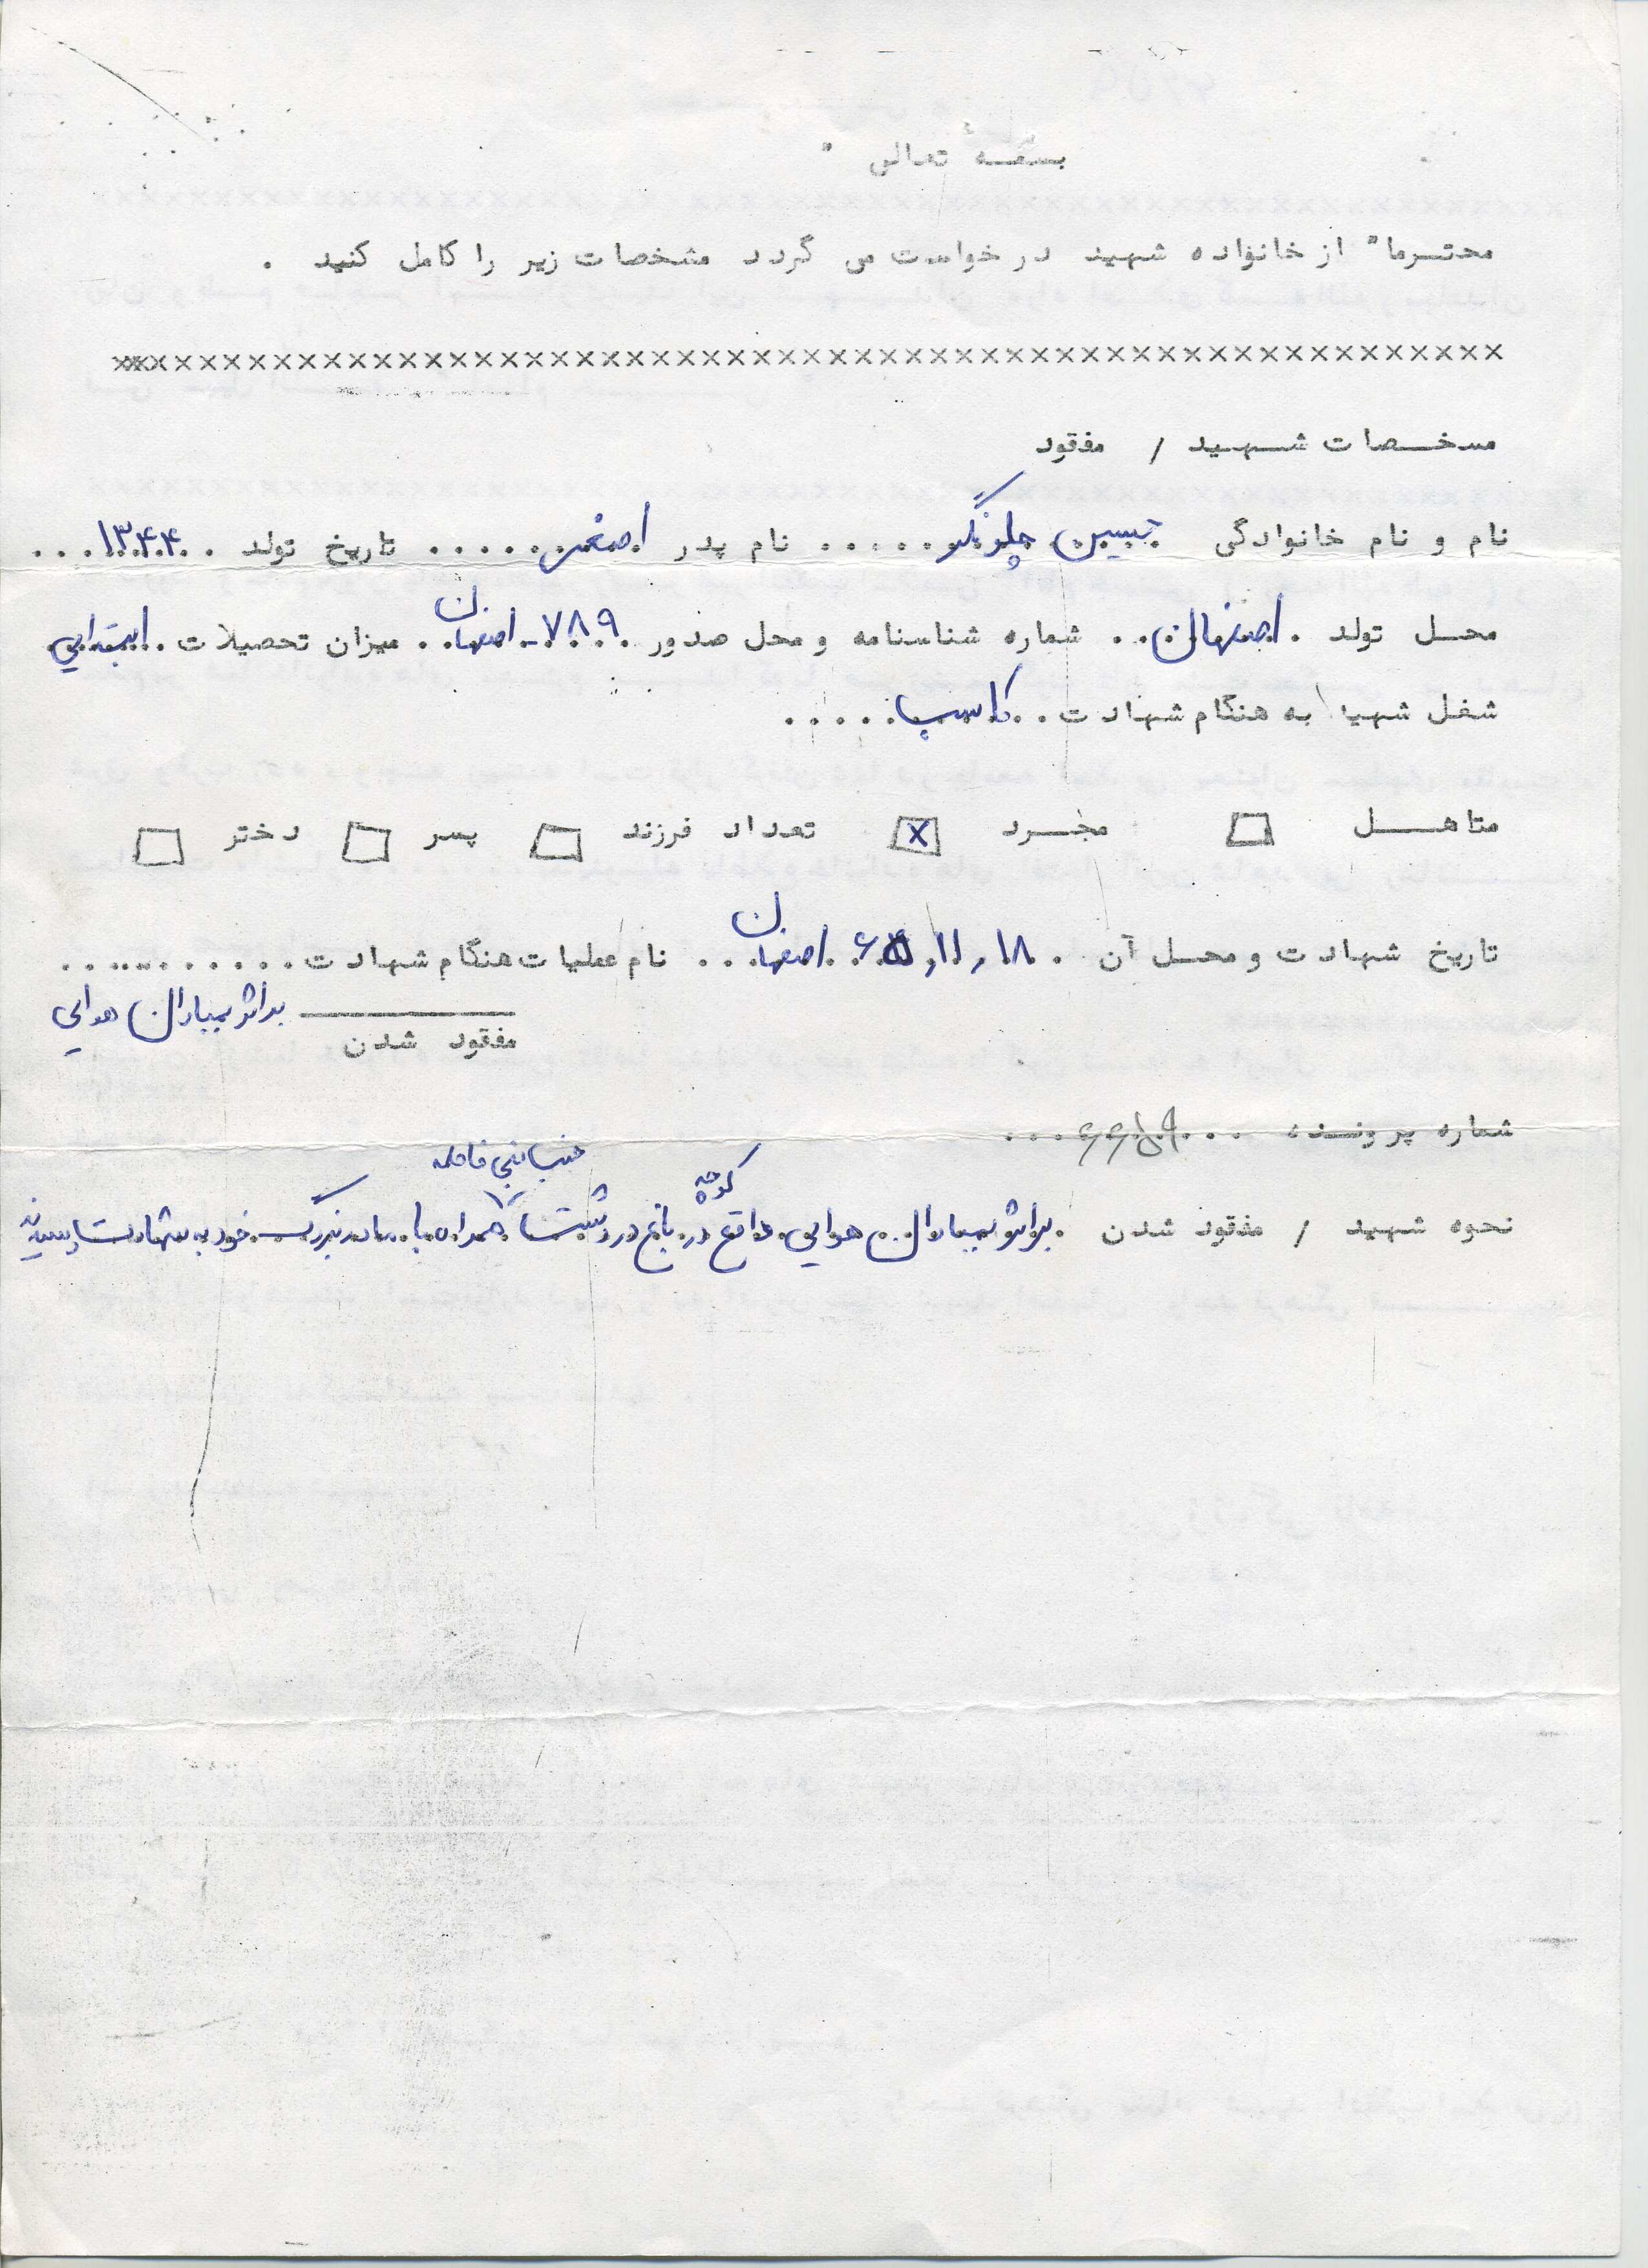 بسمه تعالی "
محترما" از خانواده شهید درخواست می گردد مشخصات زیر را کامل کنید .
××××××××××××××××××××××××××××××××××××××××××××××××××××××
مسخصات شهید / مفقود
نام و نام خانوادگی حسین چلونگر ..... نام پدر اصغر ..... تاریخ تولد ۱۳۴۴ ...
محل تولد . اصفهان .. شماره شناسنامه و محل صدور ۷۸۹ - اصفهان . میزان تحصیلات . ابتدایی
شغل شهید به هنگام شهادت .. کاسب .....
متاهل □ مجرد ☒ تعداد فرزند □ پسر □ دختر □
تاریخ شهادت و محل آن . ۱۸ ر ۱۱ ر ۶۵ اصفهان ... نام عملیات هنگام شهادت ............
مفقود شدن براثر بمباران هوایی
شماره پرونده ... ۶۶۱۹ ....
جنب
نحوه شهید / مفقود شدن . براثر بمباران هوایی واقع در کوچه باغ دردشت همراه با مادربزرگ خود به شهادت رسیدند